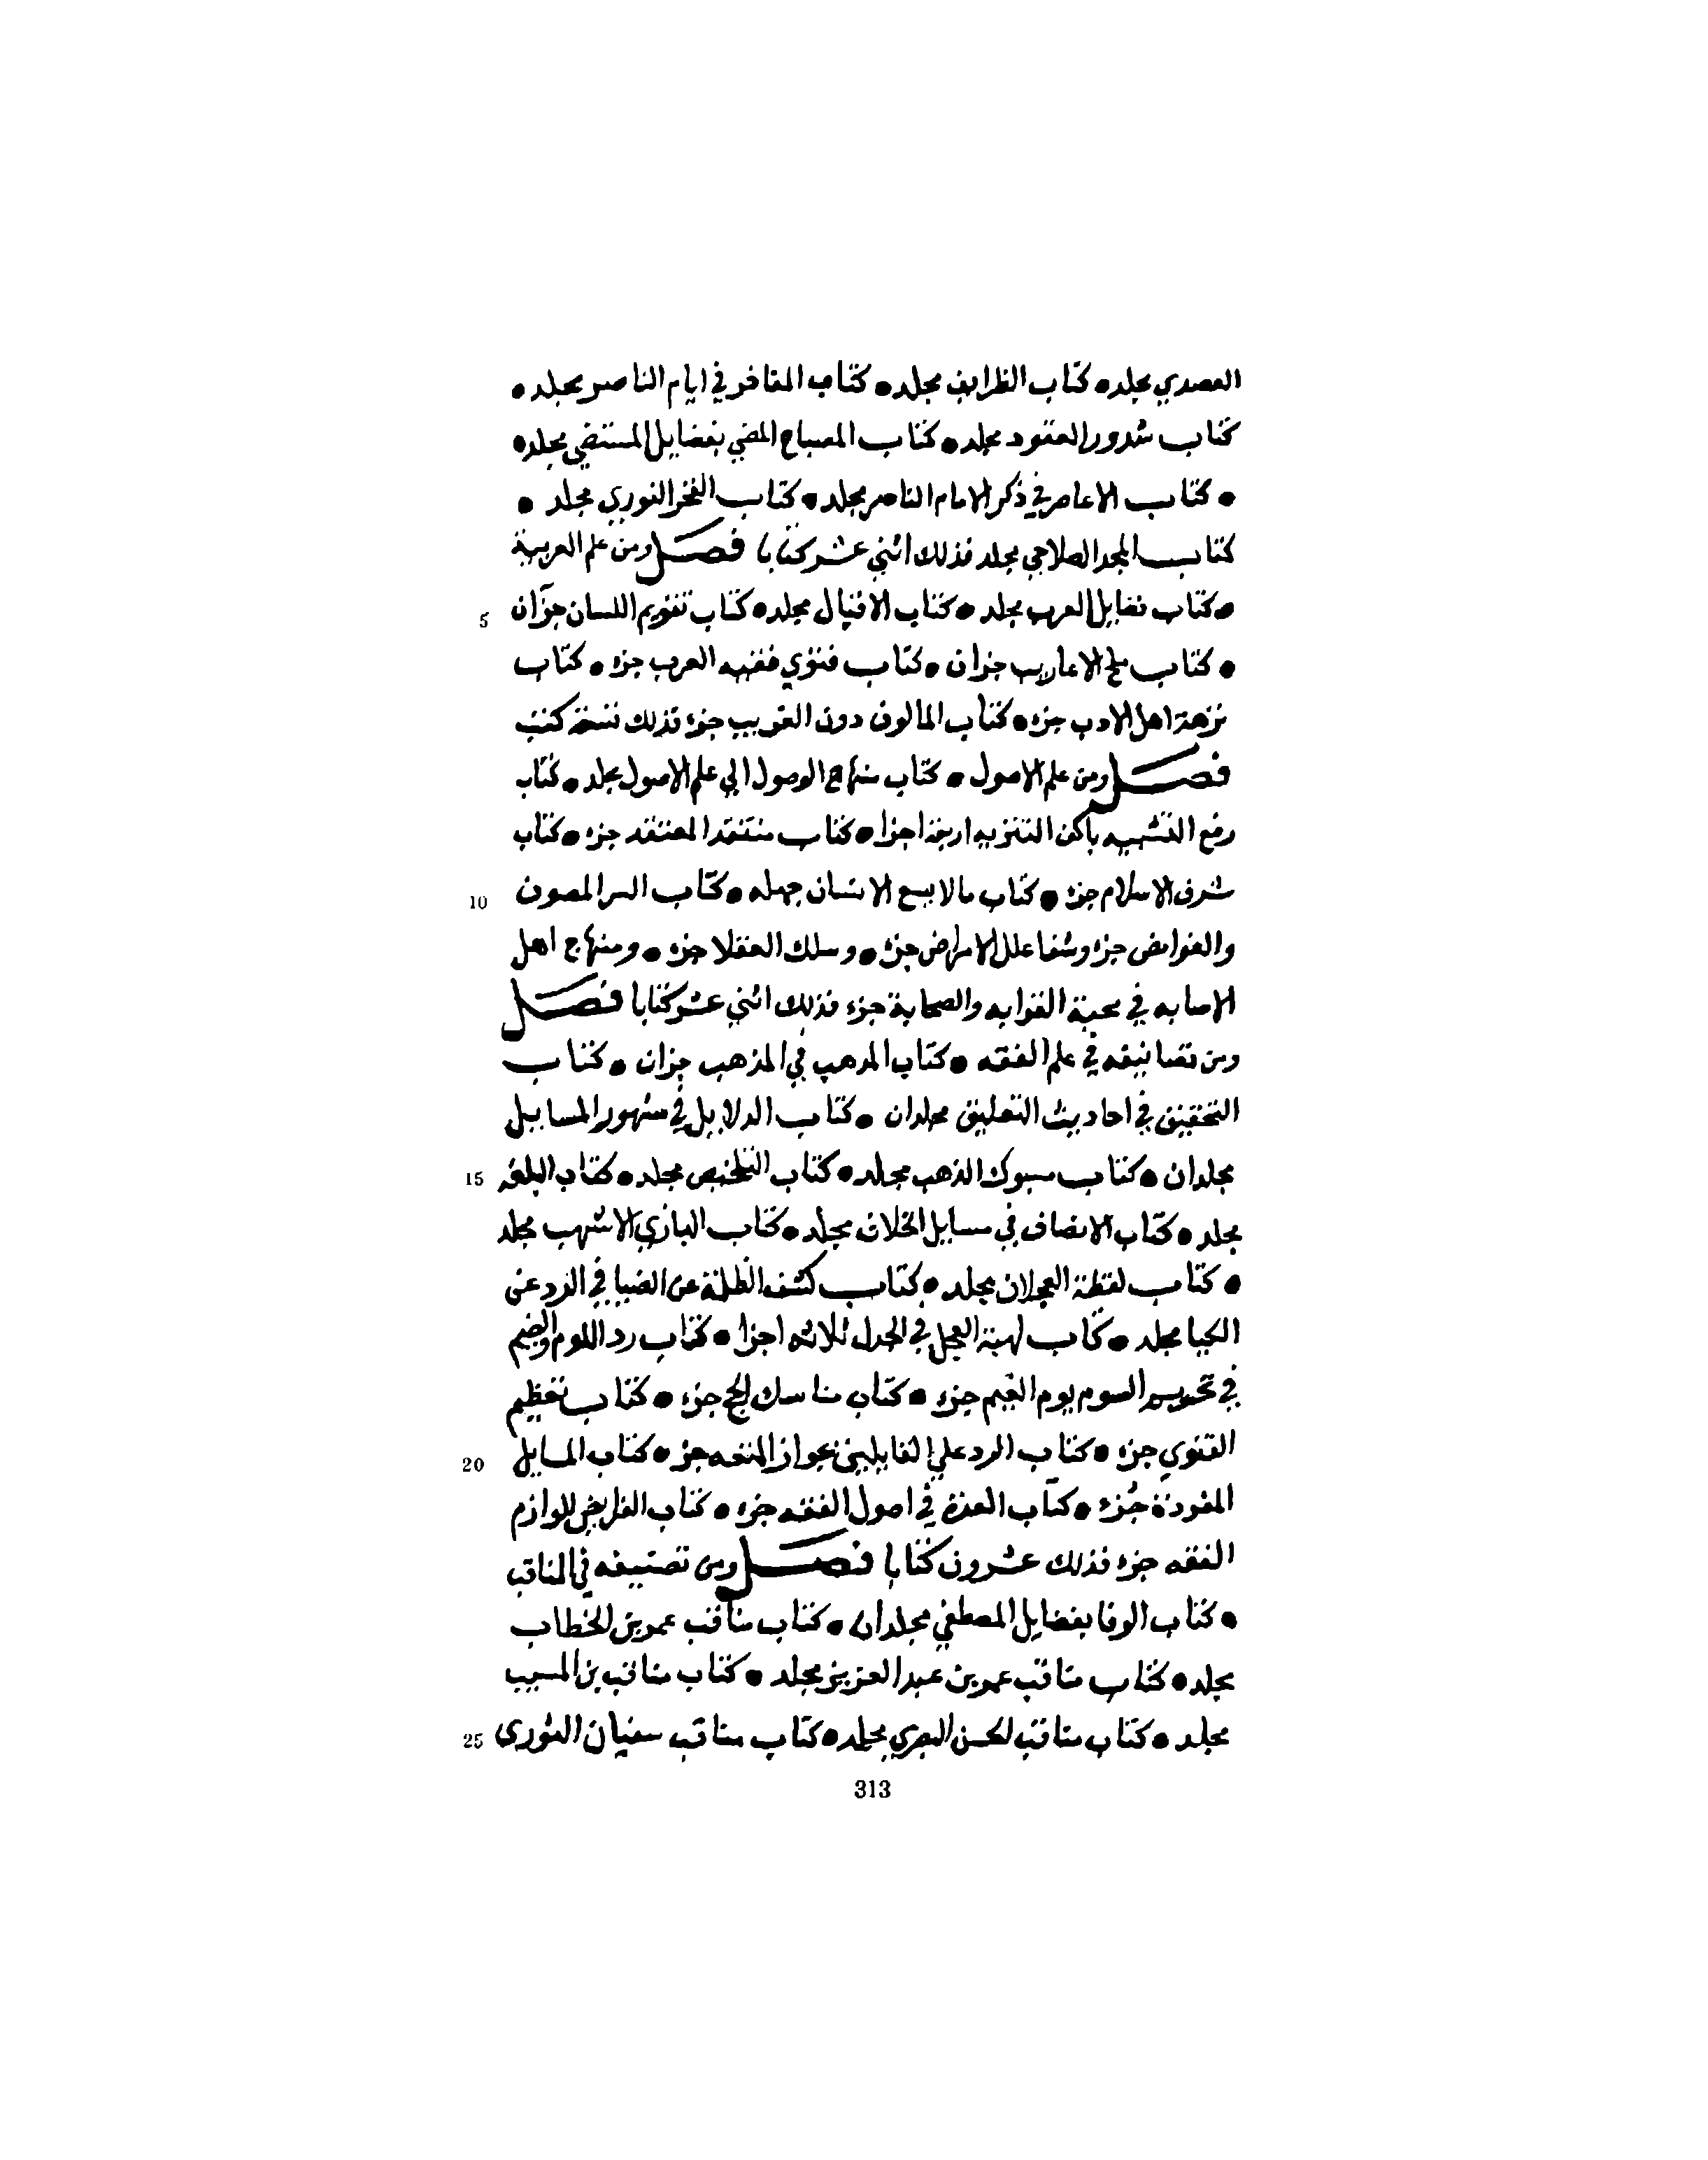 العصدي مجلد • كتاب الظرايف مجلد • كتاب المفاخر في ايام الناصر مجلد •
كتاب شدور العقود مجلد • كتاب المصباح المضي بفضايل المستضي مجلد •
• كتاب الاعاصر في ذكر الامام الناصر مجلد • كتاب الفخر النوري مجلد •
كتاب المجد الصلاحي مجلد فذلك اثني عشر كتابا فصل ومن علم العربية
• كتاب فضايل العرب مجلد • كتاب الاقتال مجلد • كتاب تقويم اللسان جزآن 5
• كتاب ملح الاعاريب جزان • كتاب فتوي فقيه العرب جزء • كتاب
نزهة اهل الادب جزء • كتاب المالوف دون الغريب جزء فذلك ستة كتب
فصل ومن علم الاصول • كتاب منهاج الوصول الي علم الاصول مجلد • كتاب
رفع التشبيه باكف التنزيه اربعة اجزا • كتاب منتقد المعتقد جزء • كتاب
شرف الاسلام جزء • كتاب مالا يسع الانسان جهله • كتاب السر المصون 10
والغوامض جزء وشفا علل الامراض جزء • ومسلك العقلا جزء • ومنهاج اهل
الاصابه في محبة القرابه والصحابة جزء فذلك اثني عشر كتابا فصل
ومن تصانيفه في علم الفقه • كتاب المدهب في المذهب جزان • كتاب
التحقيق في احاديث التعليق مجلدان • كتاب الدلايل في مشهور المسايل
مجلدان • كتاب مسبوك الذهب مجلد • كتاب التلخيص مجلد • كتاب البلغه 15
مجلد • كتاب الانصاف في مسايل الخلاف مجلد • كتاب البازي الاشهب مجلد
• كتاب لقطة العجلان مجلد • كتاب كشف الظلمة عن الضيا في الرد عن
الكيا مجلد • كتاب لهنة العجل في الجدل ثلاثه اجزا • كتاب رد اللوم والضيم
في تحريم الصوم يوم الغيم جزء • كتاب مناسك الحج جزء • كتاب تعظيم
الفتوي جزء • كتاب الرد علي القايلين بجواز المتعه جزء • كتاب المسايل 20
المفردة جُزء • كتاب العدة في اصول الفقه جزء • كتاب الفرايض للوازم
الفقه جزء فذلك عشرون كتابا فصل ومن تصنيفه في المناقب
• كتاب الوفا بفضايل المصطفي مجلدان • كتاب مناقب عمر بن الخطاب
مجلد • كتاب مناقب عمر بن عبد العزيز مجلد • كتاب مناقب بن المسيب
مجلد • كتاب مناقب الحسن البصري مجلد • كتاب مناقب سفيان الثورى 25
313